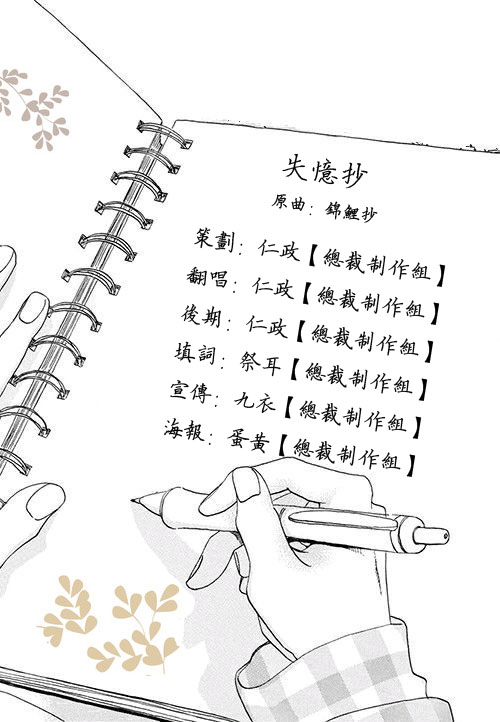 失憶抄
原曲：錦鯉抄
策劃：仁政【總裁制作組】
翻唱：仁政【總裁制作組】
後期：仁政【總裁制作組】
填詞：祭耳【總裁制作組】
宣傳：九衣【總裁制作組】
海報：蛋黃【總裁制作組】